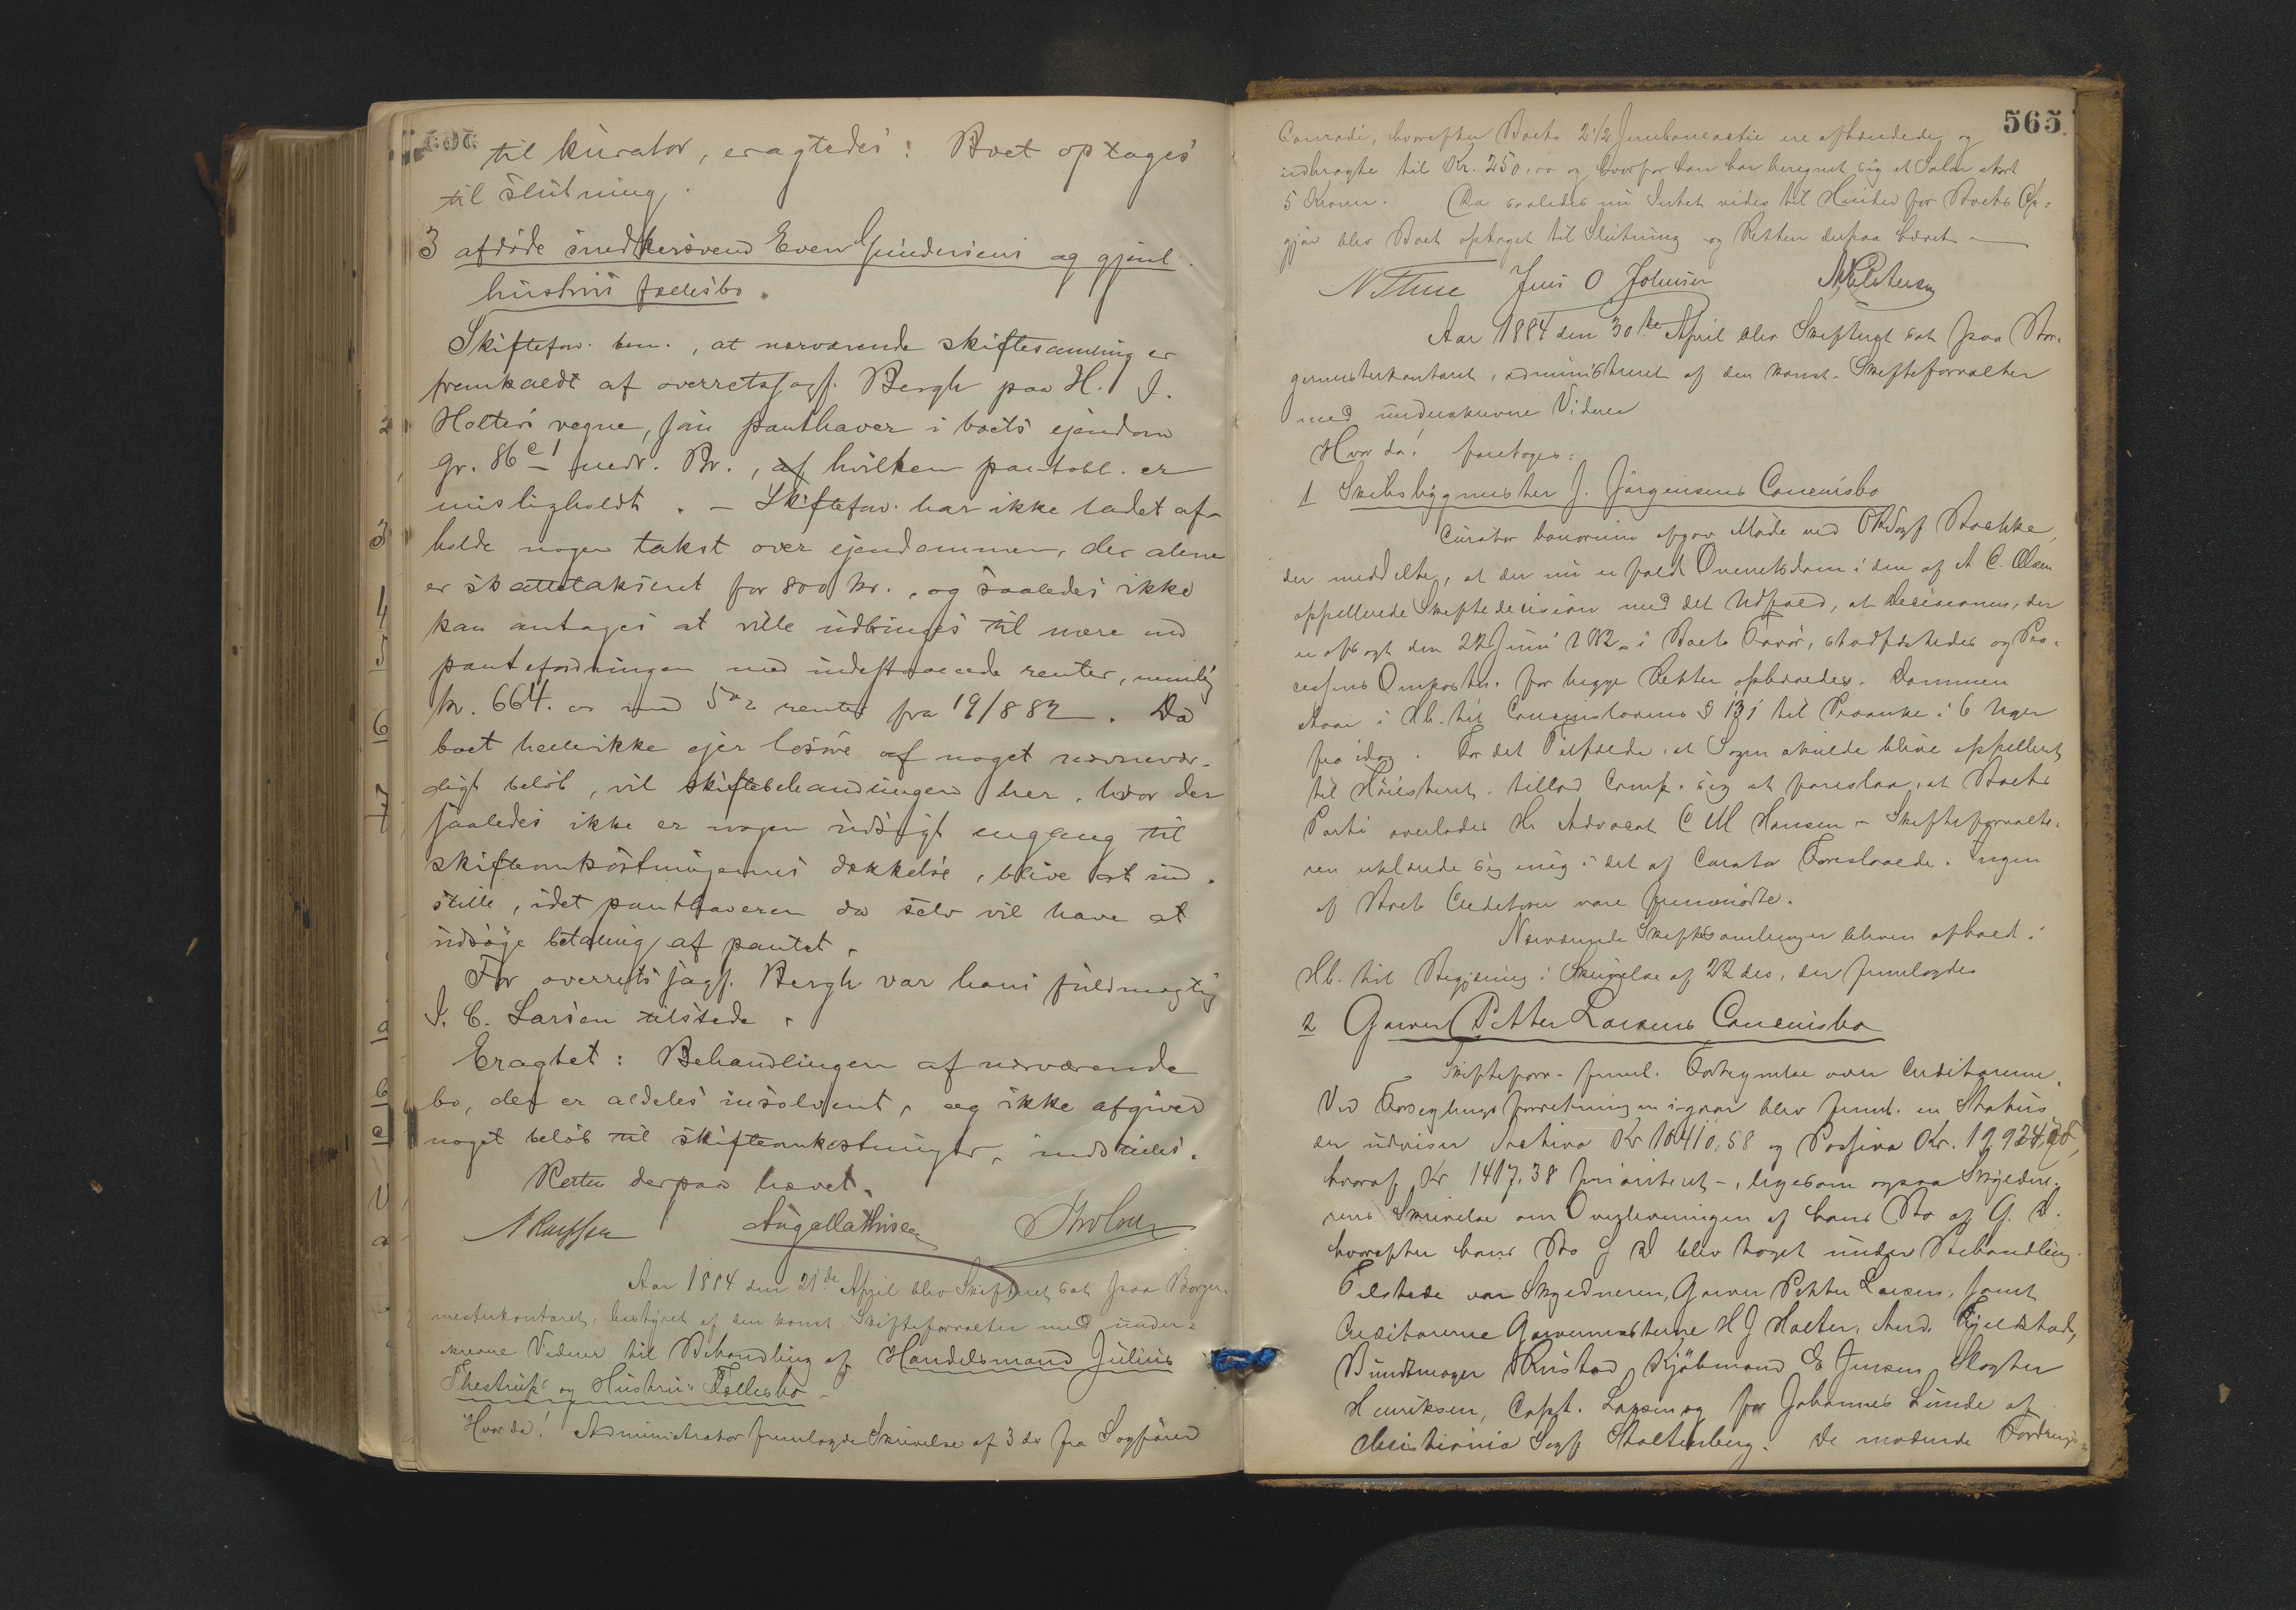 til kurator, eragtedes: Boet optages
til slutning.
3 afdøde snedkersvend Even Gundersens og gjenl.
hustrus fællesbo.
Skiftefov. bem., at nærværende skiftesamling er
fremkaldt af overretssagf. Bergh paa H. J.
Holters vegne, som panthaver i boets ejendom
gr. 86 c1 nedr. Br., af hvilken pantobl. er
misligholdt. – Skiftefov. har ikke ladet af-
holde nogen takst over ejendommen, der alene
er skattetakseret for 800 kr., og saaledes ikke
kan antages at ville udbringes til mere end
pantefordringen med indestaaende renter, nemlig
kr. 664. oo med 5 renter fra 19/8 82. Da
boet heller ikke ejer løsøre af noget nævnevær-
digt beløb, vil skiftebehandlingen her, hvor der
saaledes ikke er nogen udsigt engang til
skifteomkostningernes dækkelse, blive at ind-
stille, idet panthaveren da selv vil have at
udsøge betaling af pantet.
For overretssagf. Bergh var hans fuldmægtig
J. C. Larsen tilstede.
Eragtet: Behandlingen af nærværende
bo, der er aldeles insolvent, og ikke afgiver
noget beløb til skifteomkostninger, indstilles.
Retten derpaa hævet.
Aug Mathisen
Aar 1884 den 21de April blev Skifteret sat paa Borger-
mesterkontoret, bestyret af den konst. Skifteforvalter med under-
skrevne Vidner til Behandling af Handelsmand Julius
Thestrups og Hustrus Fællesbo –
Hvor da! Administrator fremlagde Skrivelse af 3 ds fra Sagfører
565
Conradi, hvorefter Boets 2 1/2 Jernbaneactie ere afhændede og
indbragte til Kr. 250.oo og hvorfor han har beregnet sig et Salær stort
5 Kroner. Da saaledes nu Intet vides til Hinder for Boets Op-
gjør blev Boet optaget til Slutning og Retten derpaa hævet –
N Thue Jens O Johnsen
Aar 1884 den 30te April blev Skifteret sat paa Bor-
germesterkontoret, administreret af den konst. Skifteforvalter
med underskrevne Vidner
Hvor da! foretoges:
1 Skibsbygmester J. Jørgensens Concursbo
Curator bonorum afgav Møde ved ORSagf
der meddelte, at der nu er faldt Overretsdom i den af A C. Olsen
appellerede Skiftedecision med det Udfald, at Decisionen, der
er afsagt den 22 Juni 1882 i Boets Favør, stadfæstedes og Pro-
cessens Omkostn. for begge Retter ophævedes. Dommen
staar i Hh. til Concurslovens § 131 til Paaanke i 6 Uger
fra idag. For det Tilfælde, at Sagen skulde blive appelleret
til Høiesteret, tillod Comp. sig at foreslaa, at Boets
Parti overlades Hr Advocat C M Hansen – Skifteforvalte-
ren erklærede sig enig i det af Curator Foreslaaede. Ingen
af Boets Creditorer vare fremmødte.
Nærværende Skiftesamlinger bleven afholdt i
Hh. til Begjæring i Skrivelse af 22 ds, der fremlagdes
2 Garver Petter Larsens Concursbo
Skifteforv. freml. Fortegnelse over Creditorerne.
Ved Forseglingsforretningen igaar blev freml. en Status,
der udviser Activa Kr 10410,58 og Passiva Kr. 19,924,
hvoraf Kr 1417.38 prioriteret –, ligesom ogsaa Skyldne-
rens Skrivelse om Overleveringen af hans Bo af G. D.
hvorefter hans Bo G D blev taget under Behandling.
Tilstede var Skyldneren, Garver Petter Larsen, samt
Creditorerne Garvermesterne H J Holter, And. Fjeldstad,
Bundtmager Rustad, Kjøbmand E Jensen, Slagter
Henriksen, Capt. Larsen og for Johannes Lunde af
Christiania Sagf Stoltenberg. De mødende Fordrings-